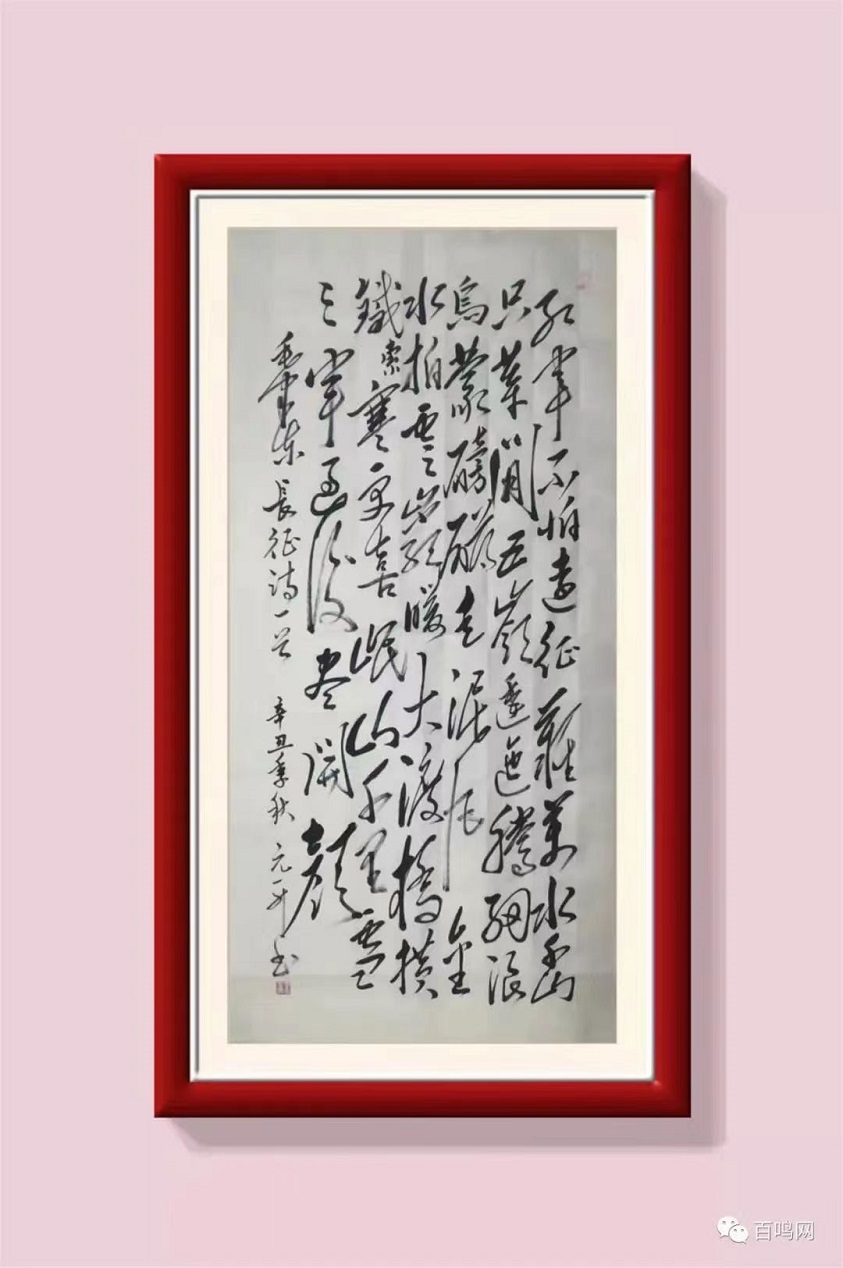 紅軍不怕遠征難萬水千山
只等閒五嶺逶迤騰細浪
烏蒙磅礴走泥丸金
水拍雲崖暖大渡橋橫
鐵索寒更喜岷山千里雪
三軍過後盡開顏
毛澤東長征詩一首 辛丑季秋 元书
百鸣网